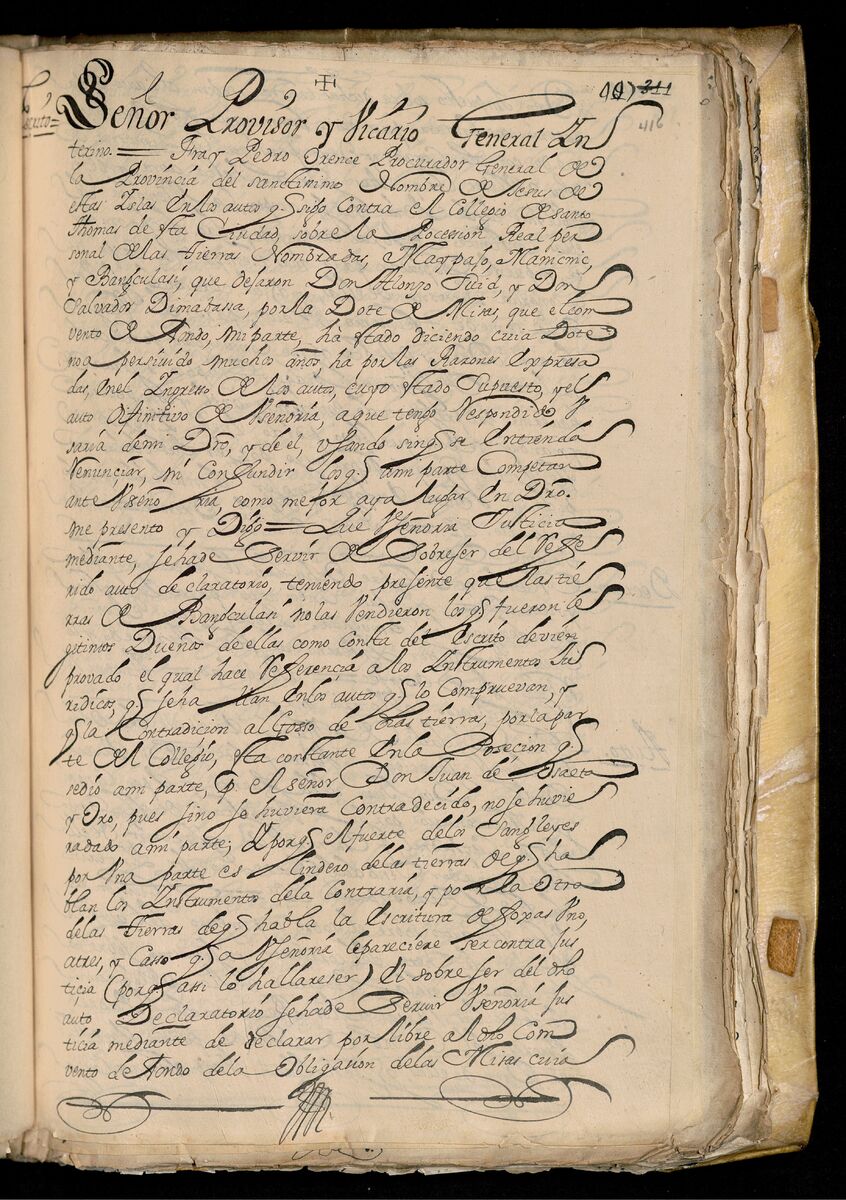 +
411 311
416
Escrito=
Señor Provisor y Vicario General In
terino.= Fray Pedro Orence Procurador General de
la Provincia del sanctissimo Nombre de Jesus de
estas Yslas En los autos q̃ sigo Contra el Collegio de santo
Thomas de esta Ciudad, sobre la Pocession Real per
sonal de las tierras Nombradas, Maypaso, Maricric,
y Bancculasi, que dejaron Don Alonso Tuid, y Don
Salvador Dimabassa, por la Dote de Misas, que el com
vento de Tondo, mi parte, há estado diciendo cuia Dote
no a persivido muchos años, há por las Razones Expresa
das, En el Ingresso de los auto, cuyo estado Supuesto, y el
auto difinitivo de Vseñoria, a que tengo Respondido V
saria de mi Dro, y de el, Vsando sin q̃ se Entienda
Renunciar, ni Confundir los q̃ a mi parte Competan
ante Vseño ria, como mejor aya lugar En Dro.
me presento y Digo= Que Vseñoria Justicia
mediante, se ha de Servir de Sobreser del Refe
rido auto declaratorio, teniendo presente que las tie
rras de Bancculasi no las Vendieron los q̃ fueron le
gitimos Dueños de ellas como Consta del Escrito de vien
provado el qual hace Referencia a los Instrumentos Ju
ridicos, q̃ se ha llan En los autos q̃ lo Compruevan, y
q̃ la Contradicion al Gosso de dhas tierras, por la par
te del Collegio, esta constante En la Posecion q̃
se dió a mi parte, p el señor Don Juan de Isaeta
y Oro, pues si no se huviera Contradecido, no se huvie
ra dado a mi parte; Y por q̃ el fuerte de los Sangleyes
por Vna parte es lindero de las tierras de q̃ ha
blan los Instrumentos de la Contraria, y por la Otra
de las Tierras de q̃ habla la Escritura de foxas Vno,
atres, y Casso q̃ a Vseñoria le pareciere ser contra Jus
ticia (por q̃ assi lo hallare ser) el sobre ser del dho
auto Declaratorio se ha de Servir Vseñoria Jus
ticia mediante de declarar por libre al dho Com
vento de Tondo de la Obligasion de las Misas cuia